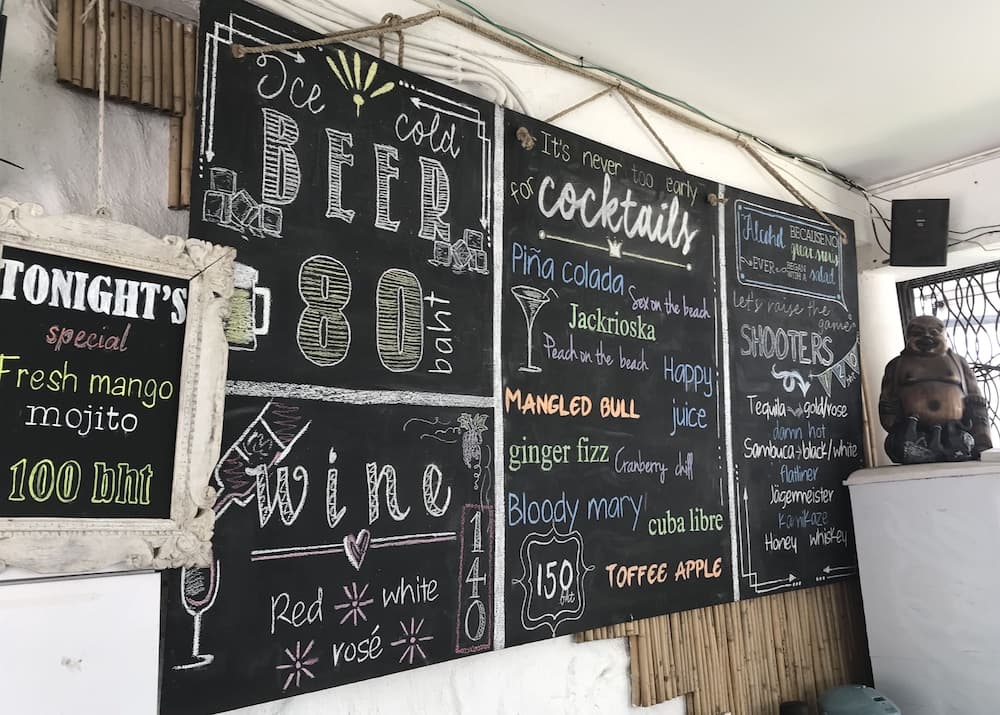 TONIGHT'S
special
Fresh mango
mojito
100 bht
Ice
cold
BEER
80
baht
wine
140
Red white
rosé
It's never too early
for cocktails
Piña colada
Sex on the beach
Jackrioska
Peach on the beach
Happy
juice
MANGLED BULL
ginger fizz
Cranberry chill
Bloody mary
cuba libre
150
bht
TOFFEE APPLE
Alcohol BECAUSE NO
great story
EVER BEGAN
WITH A salad
let's raise the
game
SHOOTERS
Tequila gold/rose
damn hot
Sambuca black/white
flatliner
Jägermeister
Kamikaze
Honey whiskey